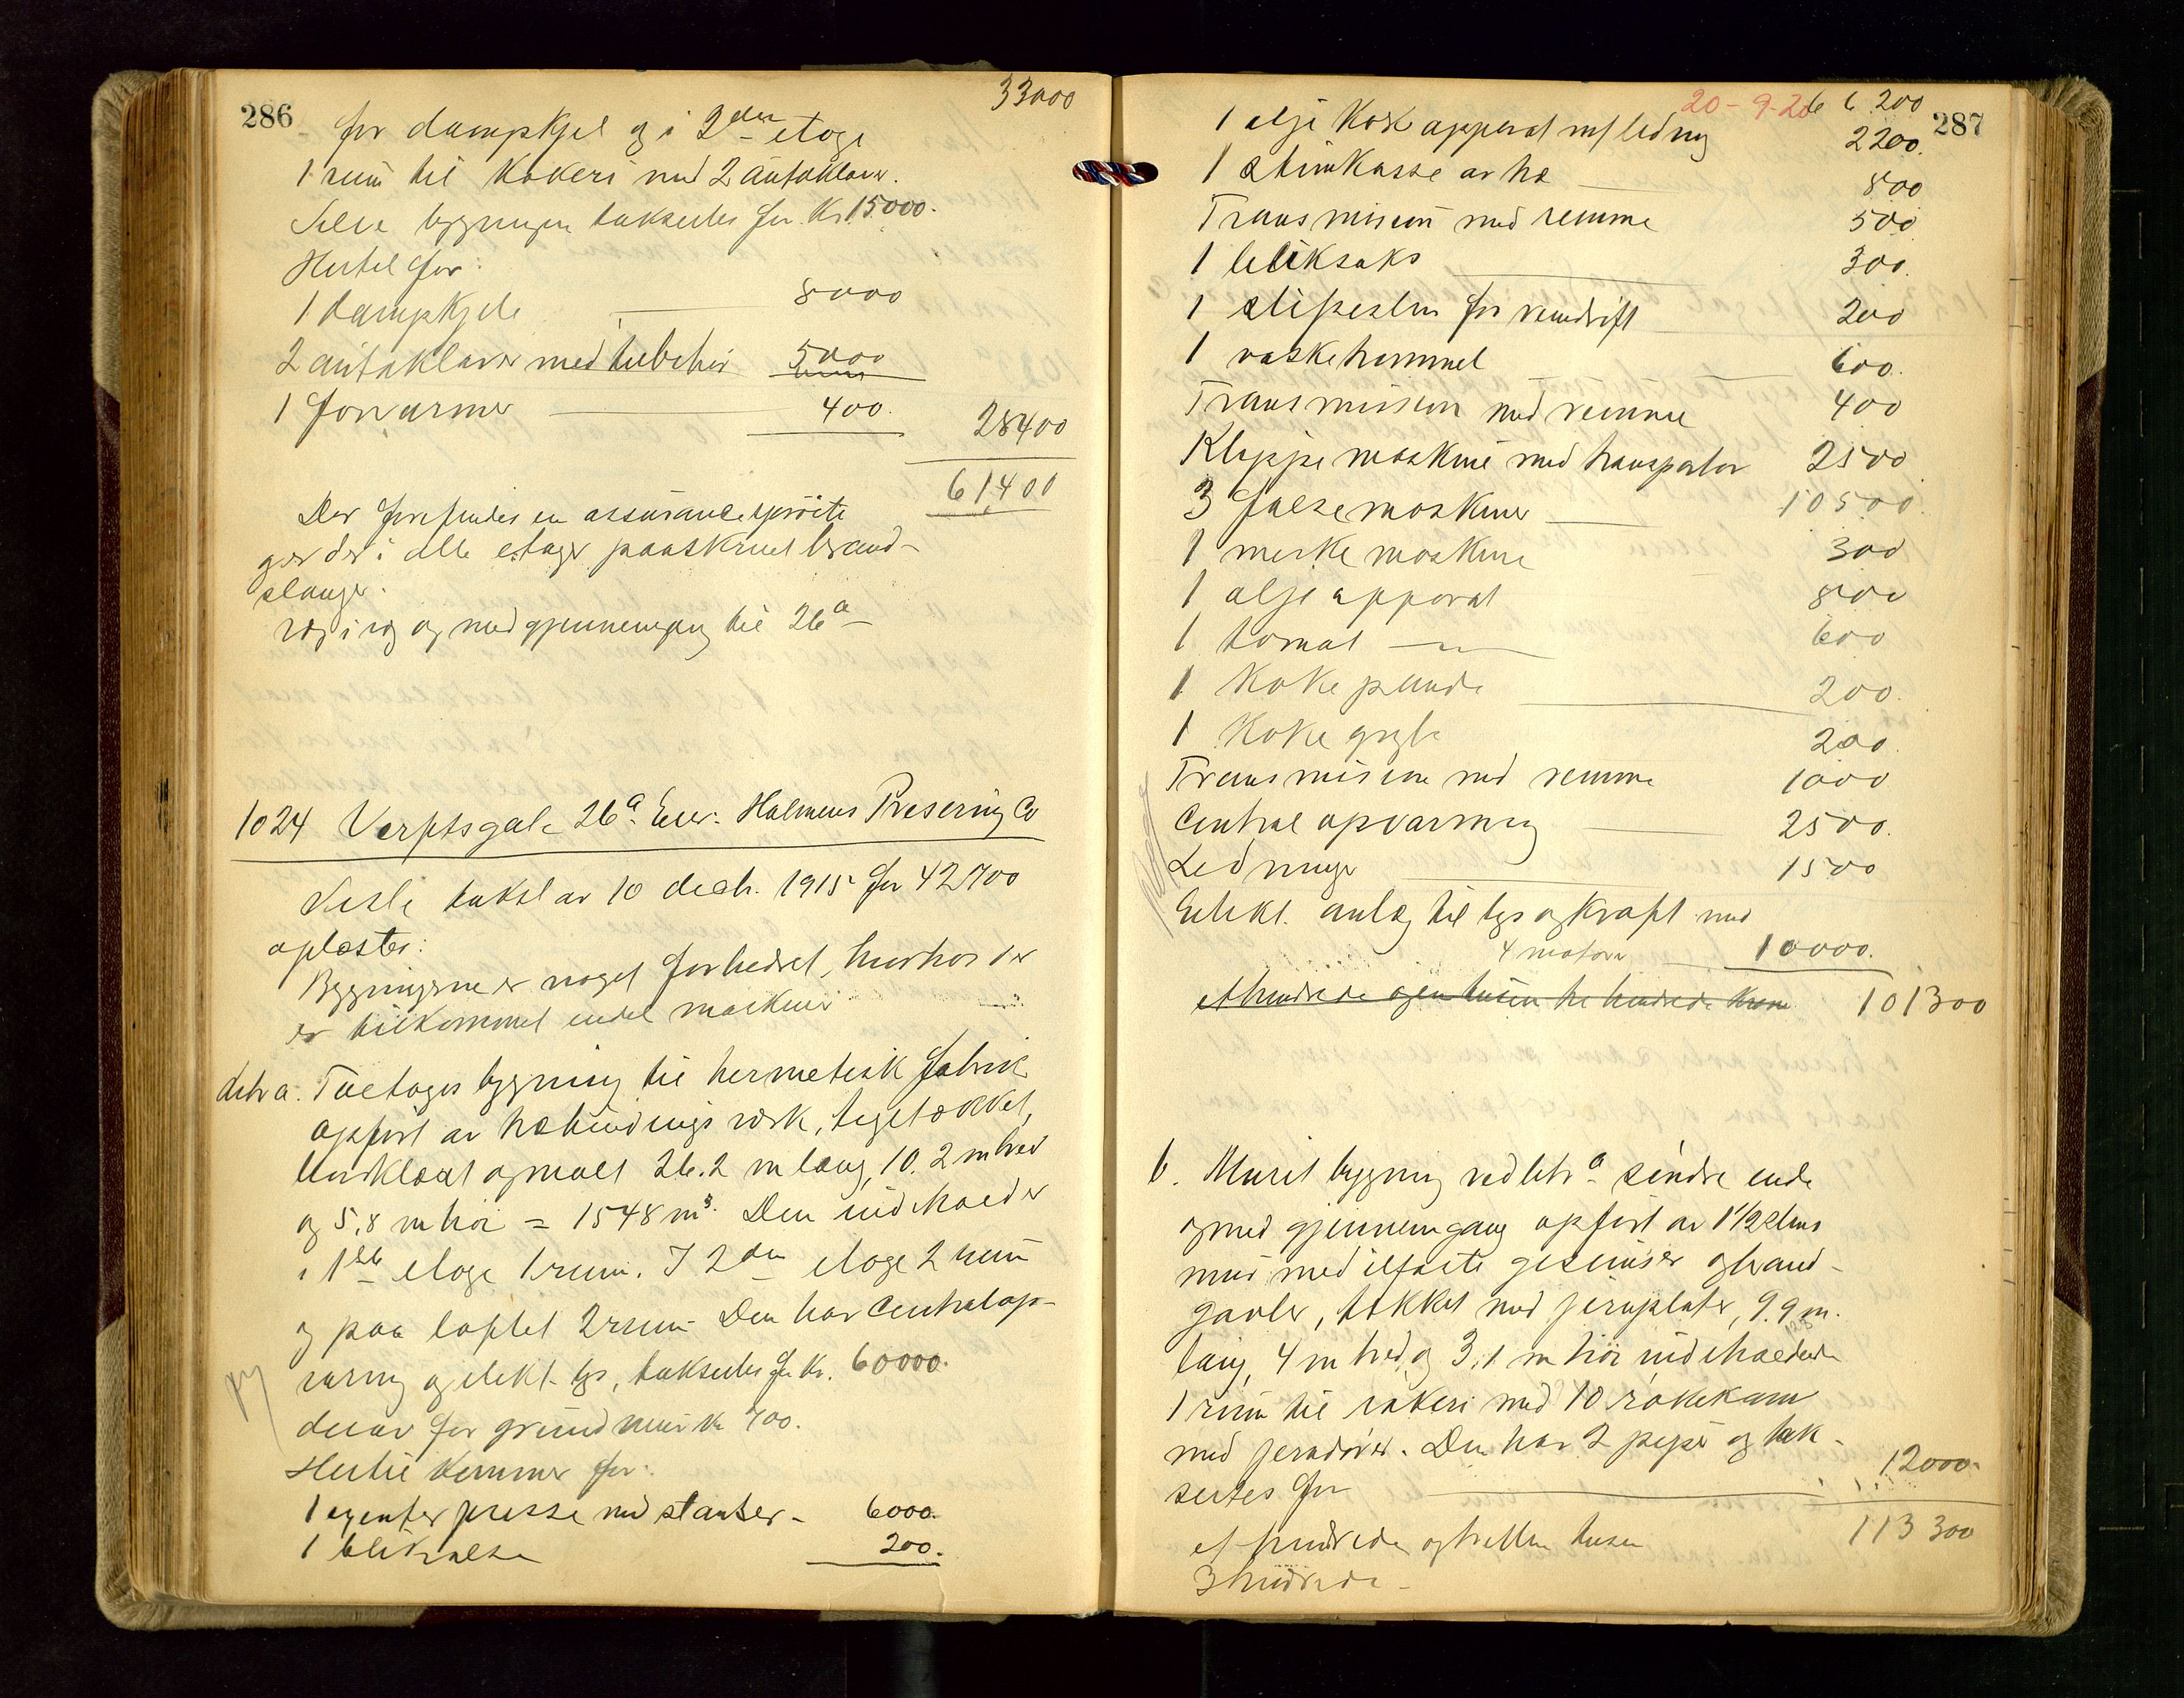 286
33000
for dampkjel og i 2den etage
1 rum til kokeri med 2 autoklaver.
Selve bygningen takseres for Kr 15000.
Hertil for:
1 dampkjele 8000
2 autoklaver med tilbehör 5000
1 forvarmer 400. 28400
61,400
Der forefindes en assurancespröite
i alle etager paaskruet brand-
slanger.
væg i væg og med gjennemgang til 26a
1024 Verftsgate 26a Eier: Halmens Preserving Co
Sidste takst av 10 decbr. 1915 for 42700
oplæstes:
Bygningerne er noget forbedret, hvorhos der
er tilkommet endel maskiner
Litr a. Toetages bygning til hermetik fabrik
opfört av træbindings værk, teglstækket,
bordklædt og malt 26.2 m lang, 10.2 m bred
og 5,8 m höi = 1548 m³. Den indeholder
i 1ste etage 1 rum. I 2den etage 2 rum
og paa loftet 2 rum. Den har Centralop-
varmg og elekt. lys, takseres for Kr. 60000.
derav for grundmur kr 700.
Hertil kommer for:
1 exenterpresse med stanser - 6000.
1 blikvalse 200.
20-9-26 6 200
287
1 olje kokeapparat m/ ledning 2200.
1 stimkasse av træ 800
Transmision med remme 500
1 bliksaks 300.
1 slipesten for remdrift 200
1 vasketrommel 600.
Transmission med remme 400
Klippe maskine med transportör 2500
3 falsemaskiner 10500.
1 merke maskine 300
1 olje apparat 800
1 tomat 600
1 koke pande 200.
1 koke gryte 200.
Transmision med remme 1000
Central opvarming 2500.
Ledninger 1500
Elekt. anlæg til lys og kraft med
4 motorer 10000.
et hundrede og en tusen tre hundrede kroner 101300
b. Muret bygning ved litr a söndre ende
og med gjennemgang opfört av 1 1/2 stens
mur med utfalte gesimser og brand-
gavler, tækket med jernplater, 9.9 m.
lang, 4 m bred og 3,1 m höi indeholdende
1 rum til rökeri med 10 rökekam
med jerndörer. Den har 2 piper og tak-
seres for 12000.
et hundrede og tretten tusen 113300
3 hundrede -